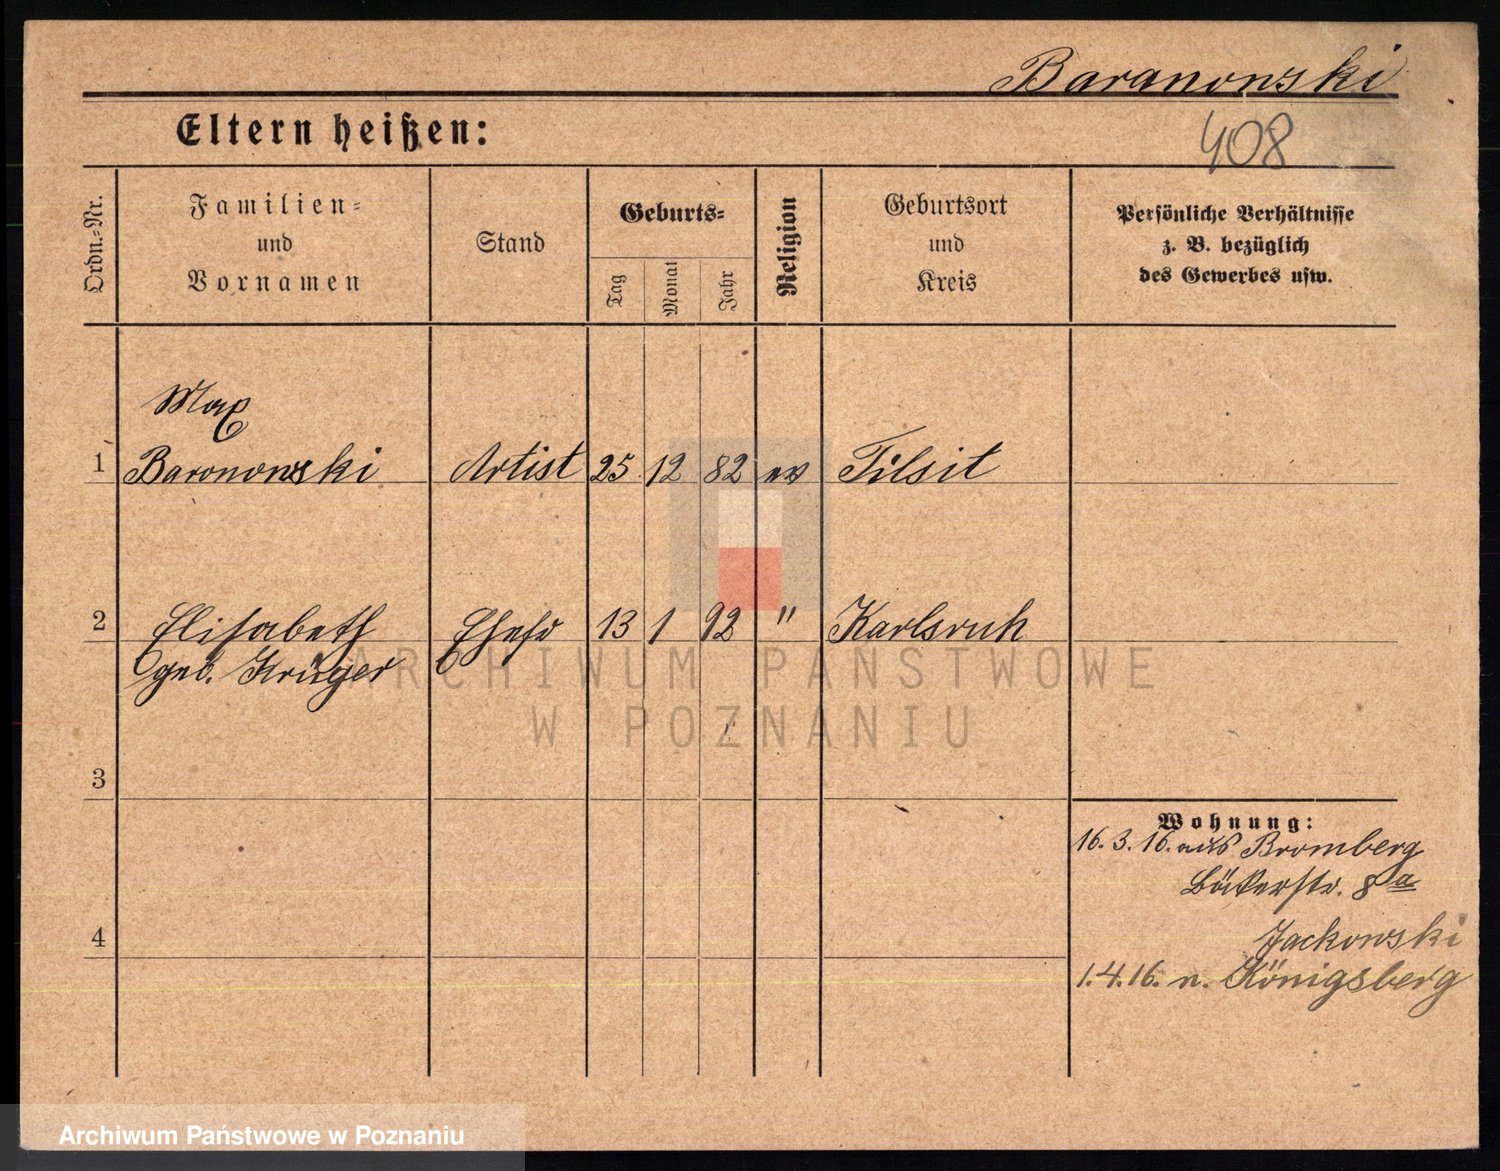 Baranowski
Eltern heißen:
408
Ordn.-Nr.
Familien-
und
Vornamen
Stand
Geburts-
Tag
Monat
Jahr
Religion
Geburtsort
und
Kreis
Persönliche Verhältnisse
z. B. bezüglich
des Gewerbes usw.
Max
1 Baronowski Artist 25 12 82 ev Tilsit
2 Elisabeth Ehefr 13 1 92 " Karlsruh
geb. Krüger
ARCHIWUM PAŃSTWOWE
W POZNANIU
3
Wohnung:
16. 3. 16. aus Bromberg
Bäckerstr. 8a
4
Jackowski
1. 4. 16. n. Königsberg
Archiwum Państwowe w Poznaniu